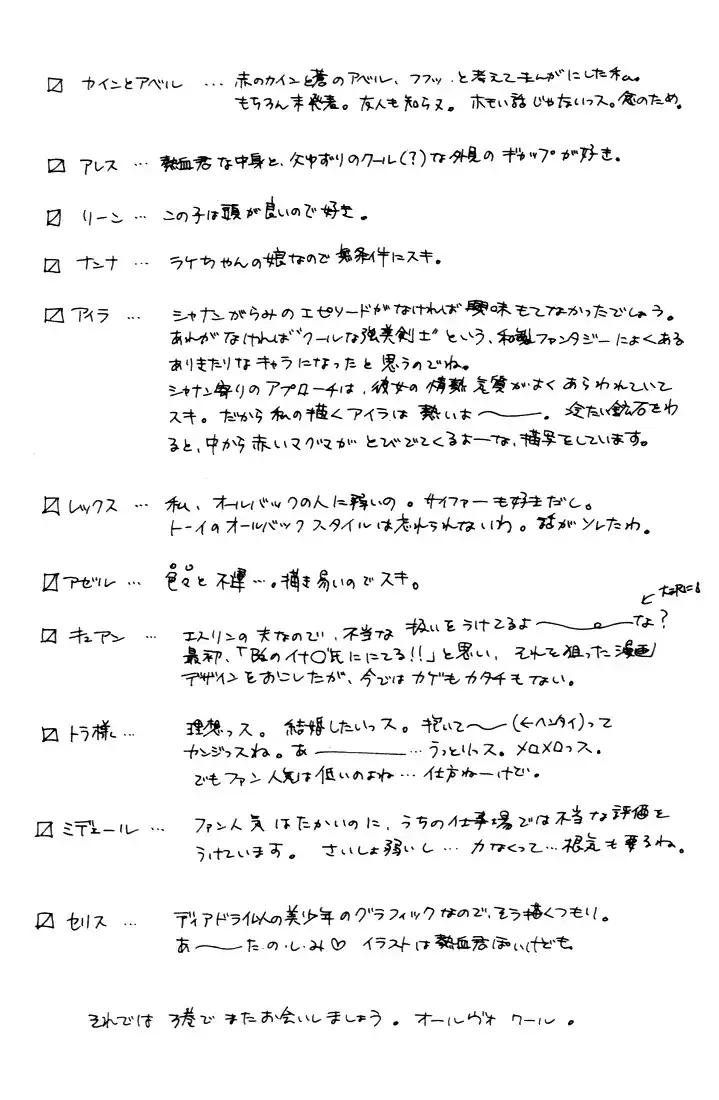 カインとアベル … 赤のカインと蒼のアベル、フフッ…と考えてまんがにした私。
もちろん未発表。友人も知らヌ。ホモい話じゃないっス。念のため。
アレス … 熱血君な中身と、父ゆずりのクール(?)な外見のギャップが好き。
リーン … この子は頭が良いので好き。
ナンナ … ラケちゃんの娘なので無条件にスキ。
アイラ … シャナンがらみのエピソードがなければ興味もてなかったでしょう。
あれがなければ“クールな強美剣士”という、和製ファンタジーによくある
ありきたりなキャラになったと思うのでね。
シャナン寄りのアプローチは、彼女の情熱気質がよくあらわれていて
スキ。だから私の描くアイラは熱いよ〜。冷たい鉱石をわ
ると、中から赤いマグマがとびでてくるよーな、描写をしています。
レックス … 私、オールバックの人に弱いの。サイファーも好きだし。
トーイのオールバックスタイルは忘れられないわ。話がソレたわ。
アゼル … 色々と不運…。描き易いのでスキ。
キュアン … エスリンの夫なので、不当な扱いをうけてるよ〜な?
最初、「B'zのイナ○氏ににてる!!」と思い、それを狙った漫画
デザインをおこしたが、今ではカゲもカタチもない。
トラ様 … 理想っス。結婚したいっス。抱いて〜(←ヘンタイ)って
カンジっスね。あ――…うっとりっス。メロメロっス。
でもファン人気は低いのよね…仕方ねーけど。
ミデェール … ファン人気はたかいのに、うちの仕事場では不当な評価を
うけています。さいしょ弱いし…力なくって…根気も要るね。
セリス … ディアドラ似の美少年のグラフィックなので、そう描くつもり。
あ〜た・の・し・み♡ イラストは熱血君ぽいけども。
それでは3巻でまたお会いしましょう。オールヴォワール。